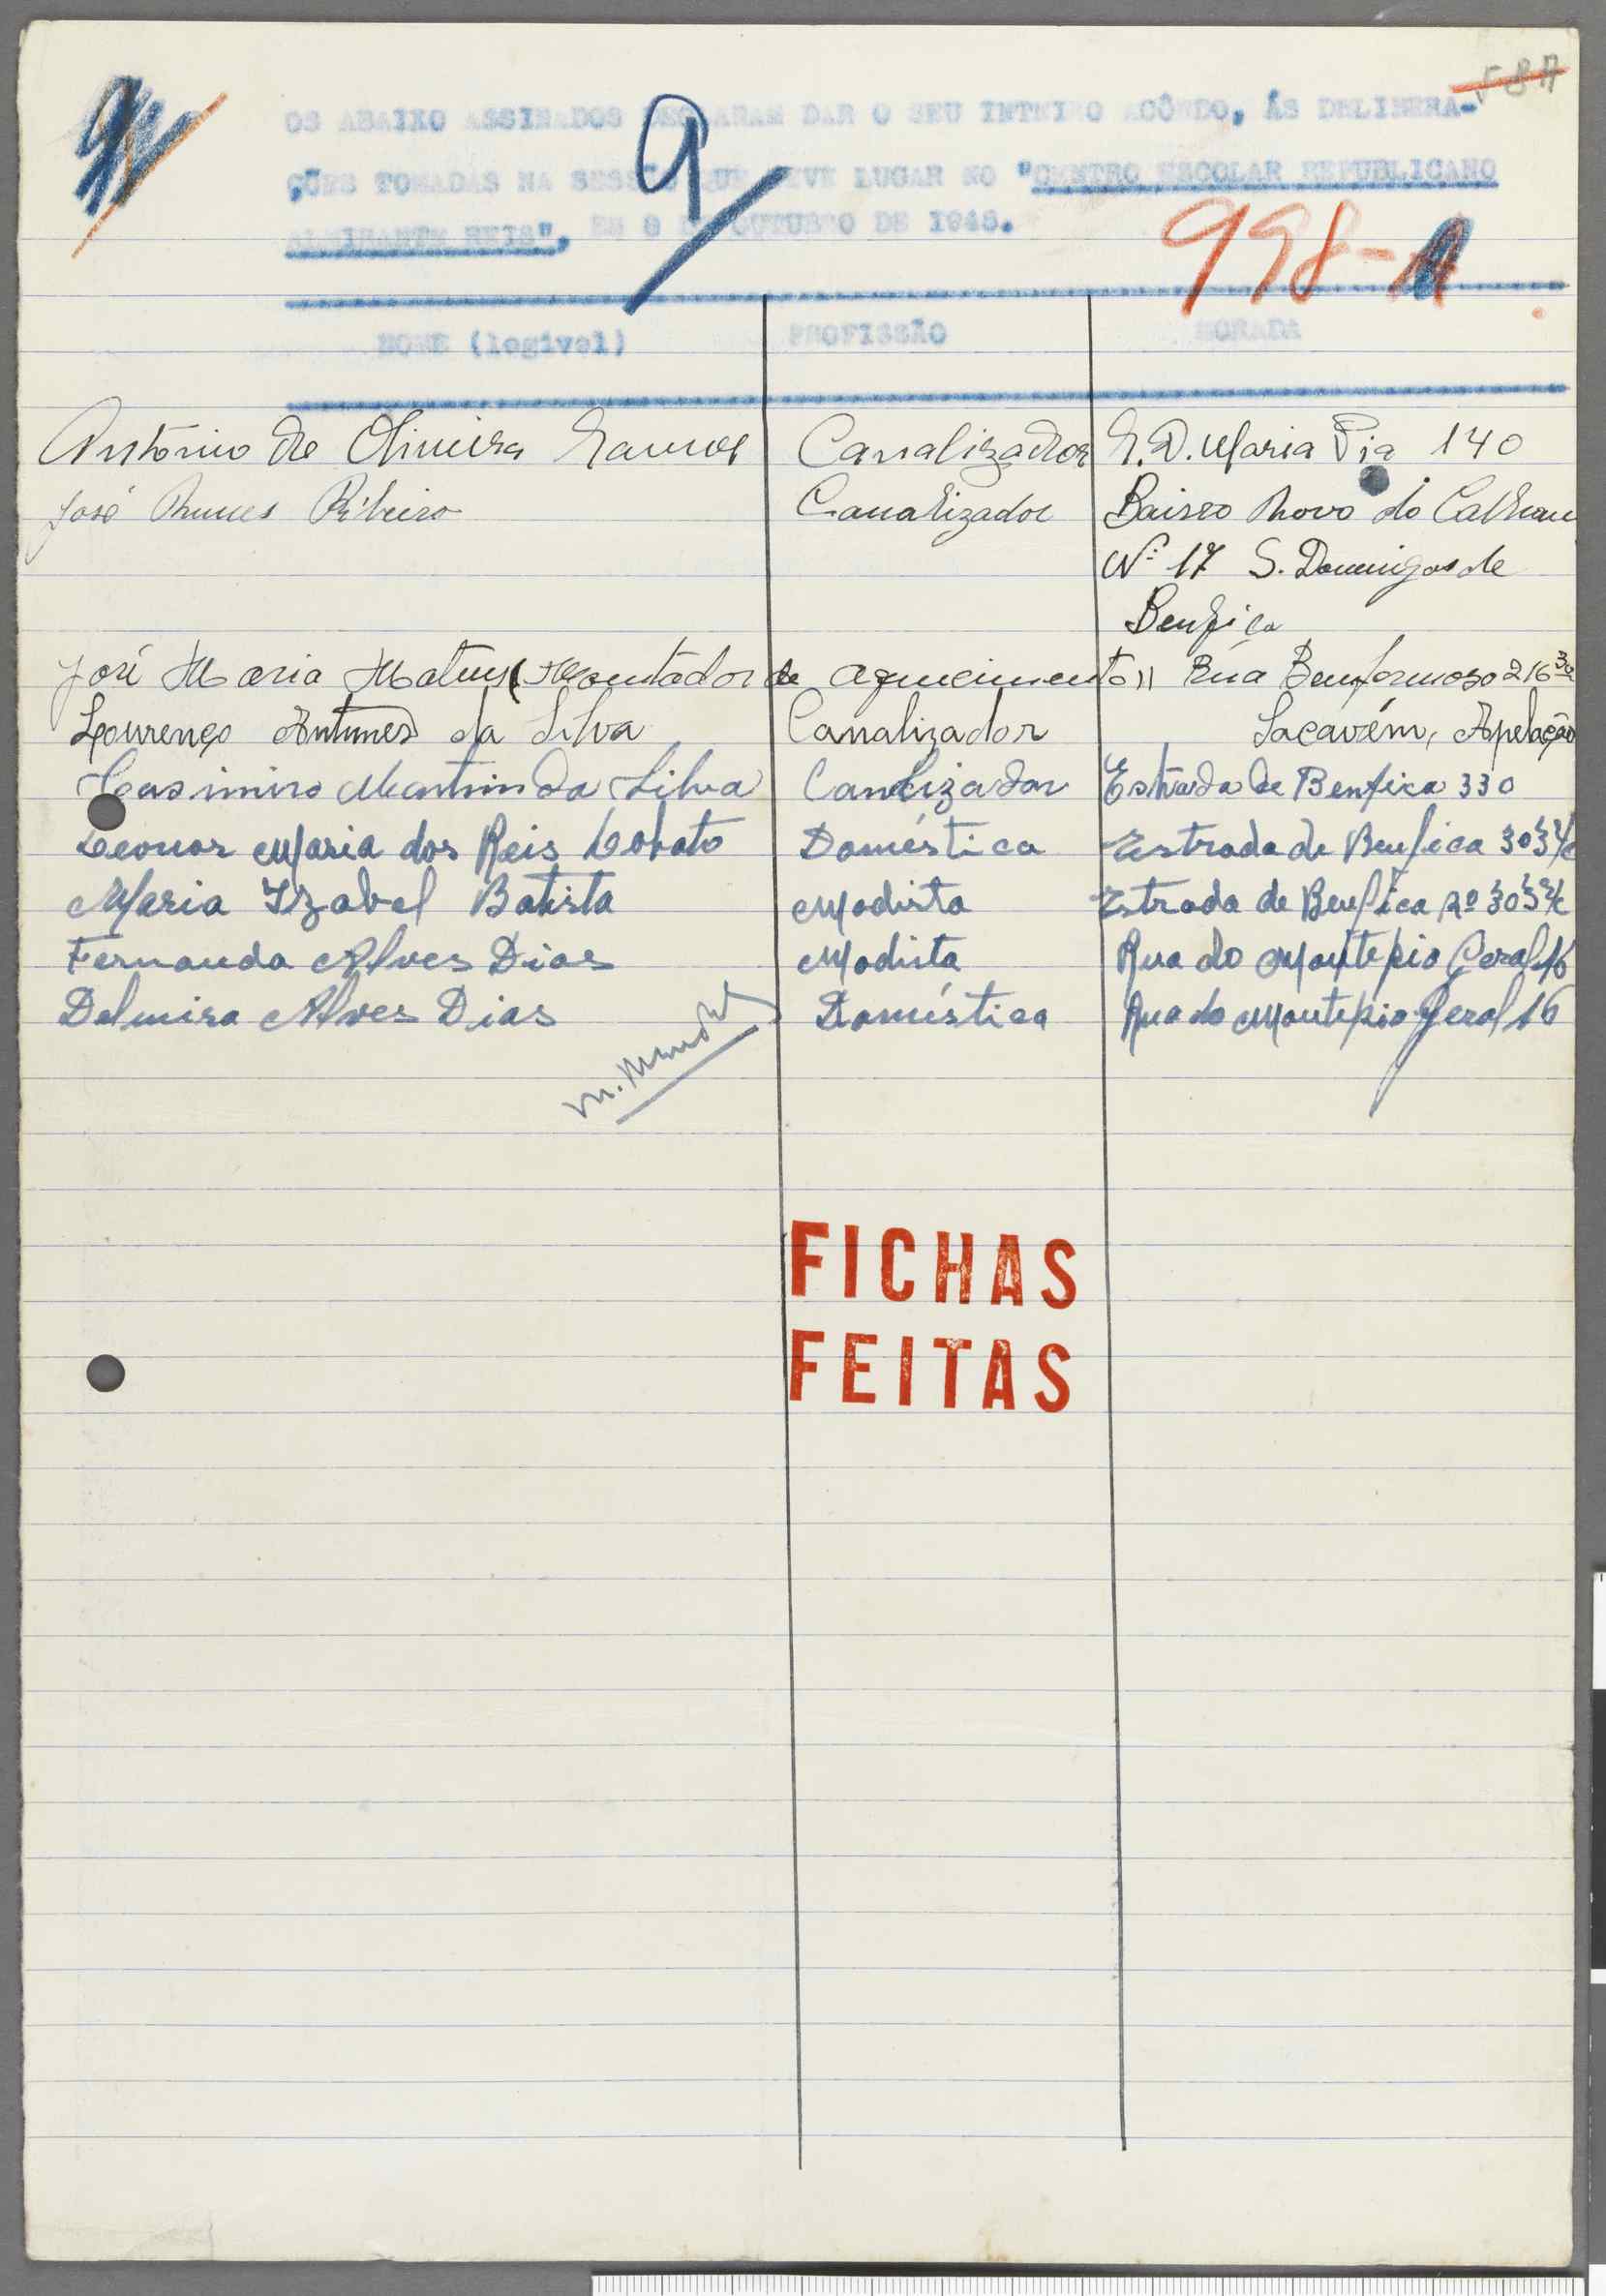 58A
9
OS ABAIXO ASSINADOS DECLARAM DAR O SEU INTEIRO ACÔRDO, ÁS DELIBERA-
ÇÕES TOMADAS NA SESSÃO QUE TEVE LUGAR NO "CENTRO ESCOLAR REPUBLICANO
ALMIRANTE REIS", EM 8 DE OUTUBRO DE 1945.
998-A
NOME (legivel) PROFISSÃO MORADA
António de Oliveira Canalizador R. D. Maria Pia 140
José Nunes Ribeiro Canalizador Bairro Novo do Calhau
Nº 17 S. Domingos de
Benfica
José Maria Matus (Montador de aquecimento)) Rúa Benformoso 216 3º
Lourenço Antunes da Silva Canalizador Sacavém, Apelação
Casimiro Martins da Silva Canalizador Estrada de Benfica 330
Leonor Maria dos Reis Lobato Doméstica Estrada de Benfica 303 r/c
Maria Izabel Batista Modista Estrada de Benfica nº 303 r/c
Fernanda Alves Dias Modista Rua do Montepio Geral 16
Delmira Alves Dias Doméstica Rua do Montepio Geral 16
FICHAS
FEITAS